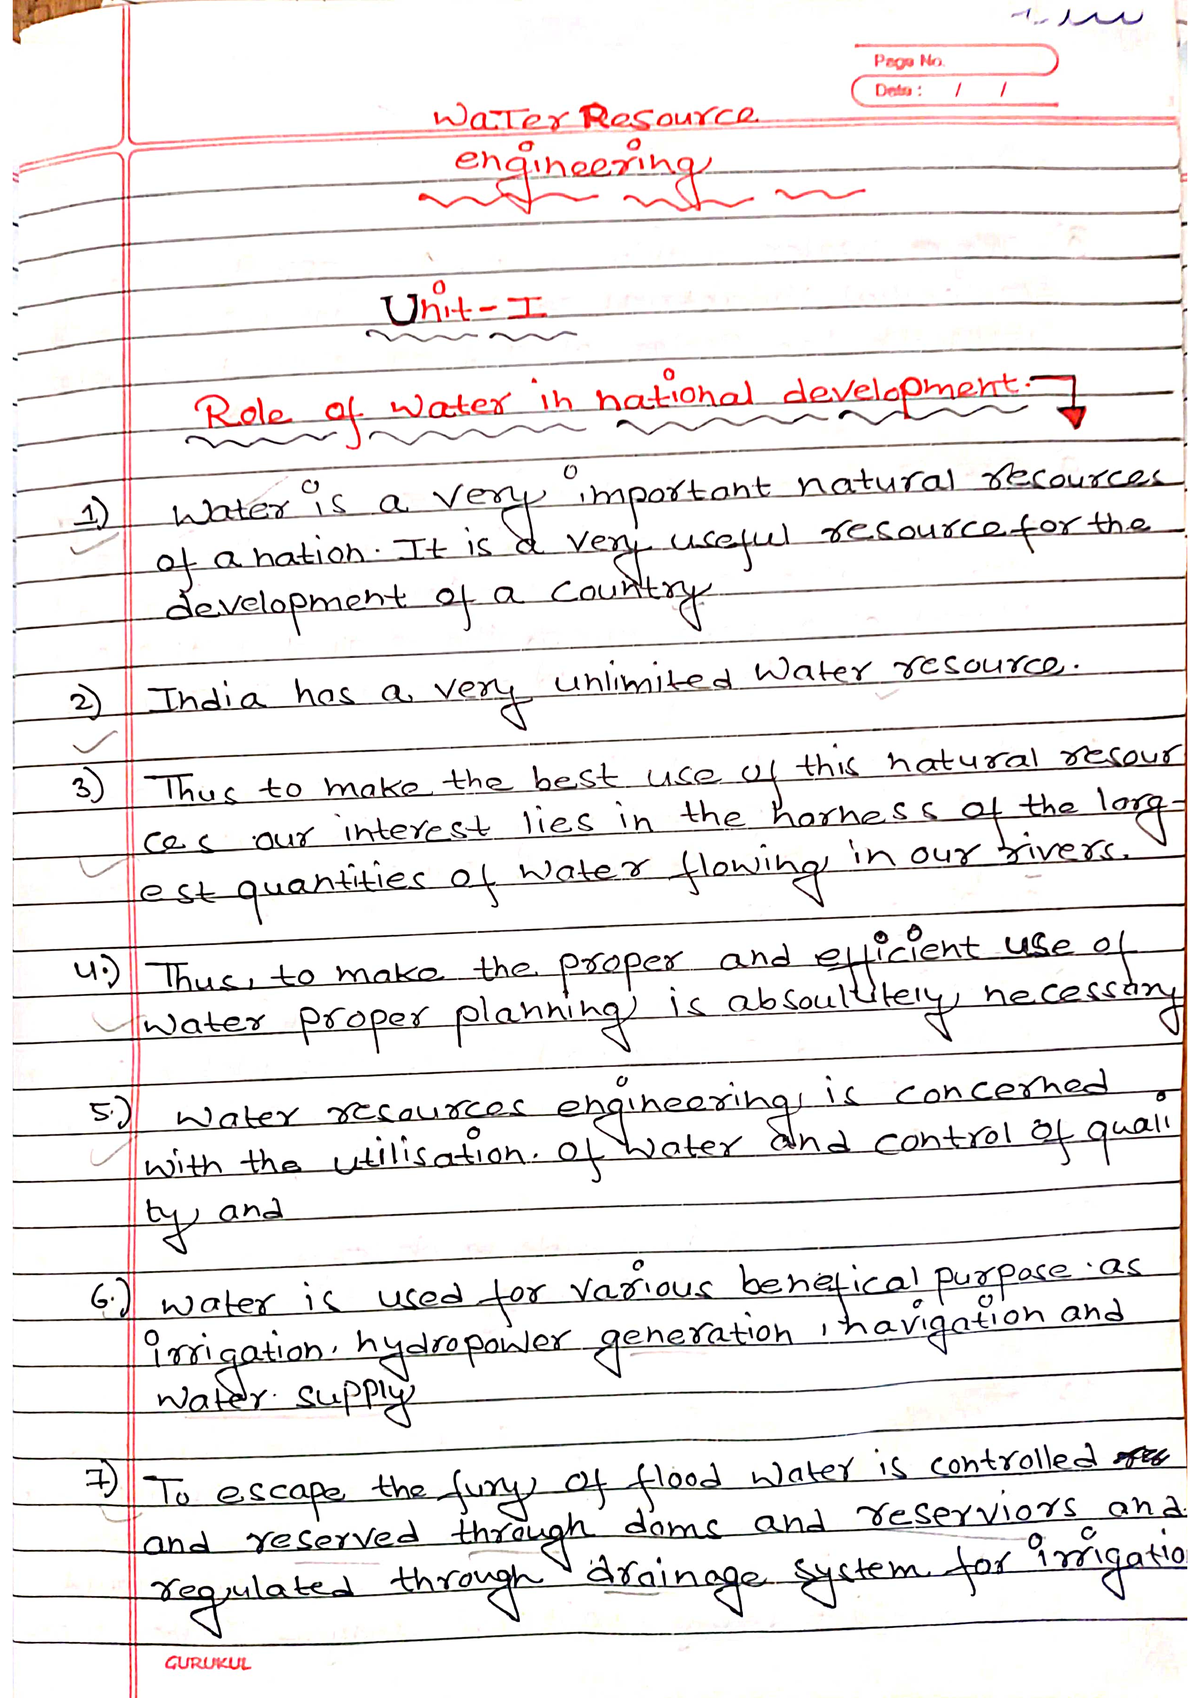 Page No.
Date : / /
Water Resource
engineering
Unit - I
Role of water in national development.
1) Water is a very important natural resources
of a nation. It is a very useful resource for the
development of a country
2) India has a very unlimited water resource.
3) Thus to make the best use of this natural resour
ces our interest lies in the harness of the larg-
est quantities of water flowing in our rivers.
4.) Thus, to make the proper and efficient use of
water proper planning is absoulutely necessary
5.) Water resources engineering is concerned
with the utilisation. of water and control of quali
ty and
6.) water is used for various benefical purpose. as
irrigation, hydropower generation, navigation and
water. supply
7) To escape the fury of flood water is controlled
and reserved through dams and reserviors and
regulated through drainage system for irrigatio
GURUKUL